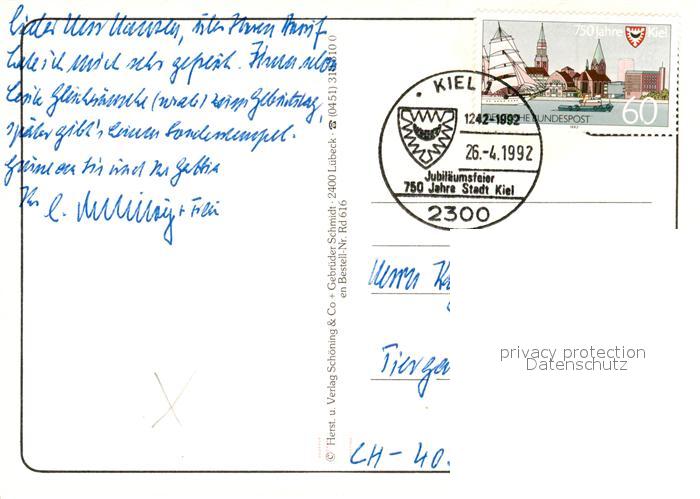 Lieber Herr Hansen, über Ihren Anruf
habe ich mich sehr gefreut. Ihnen schon
beste Glückwünsche (vorab) zum Geburtstag,
später gibt's keinen Sonderstempel.
Grüsse an Sie und Ihr
Ihr
750 Jahre Kiel
DEUTSCHE BUNDESPOST
60
1992
KIEL 1
1242-1992
26.-4.1992
Jubiläumsfeier
750 Jahre Stadt Kiel
2300
© Herst. u. Verlag Schöning & Co + Gebrüder Schmidt · 2400 Lübeck ☎ (04 51) 31 03 10 0
en Bestell-Nr. Rd 616
Herrn
Tierga
CH - 40.
privacy protection
Datenschutz